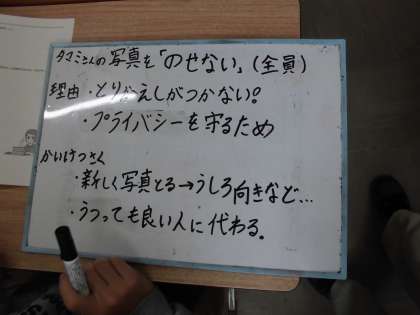 タマミさんの写真を「のせない」(全員)
理由・とりかえしがつかない!
・プライバシーを守るため
かいけつさく
・新しく写真とる→うしろ向きなど…
・うつっても良い人に代わる。